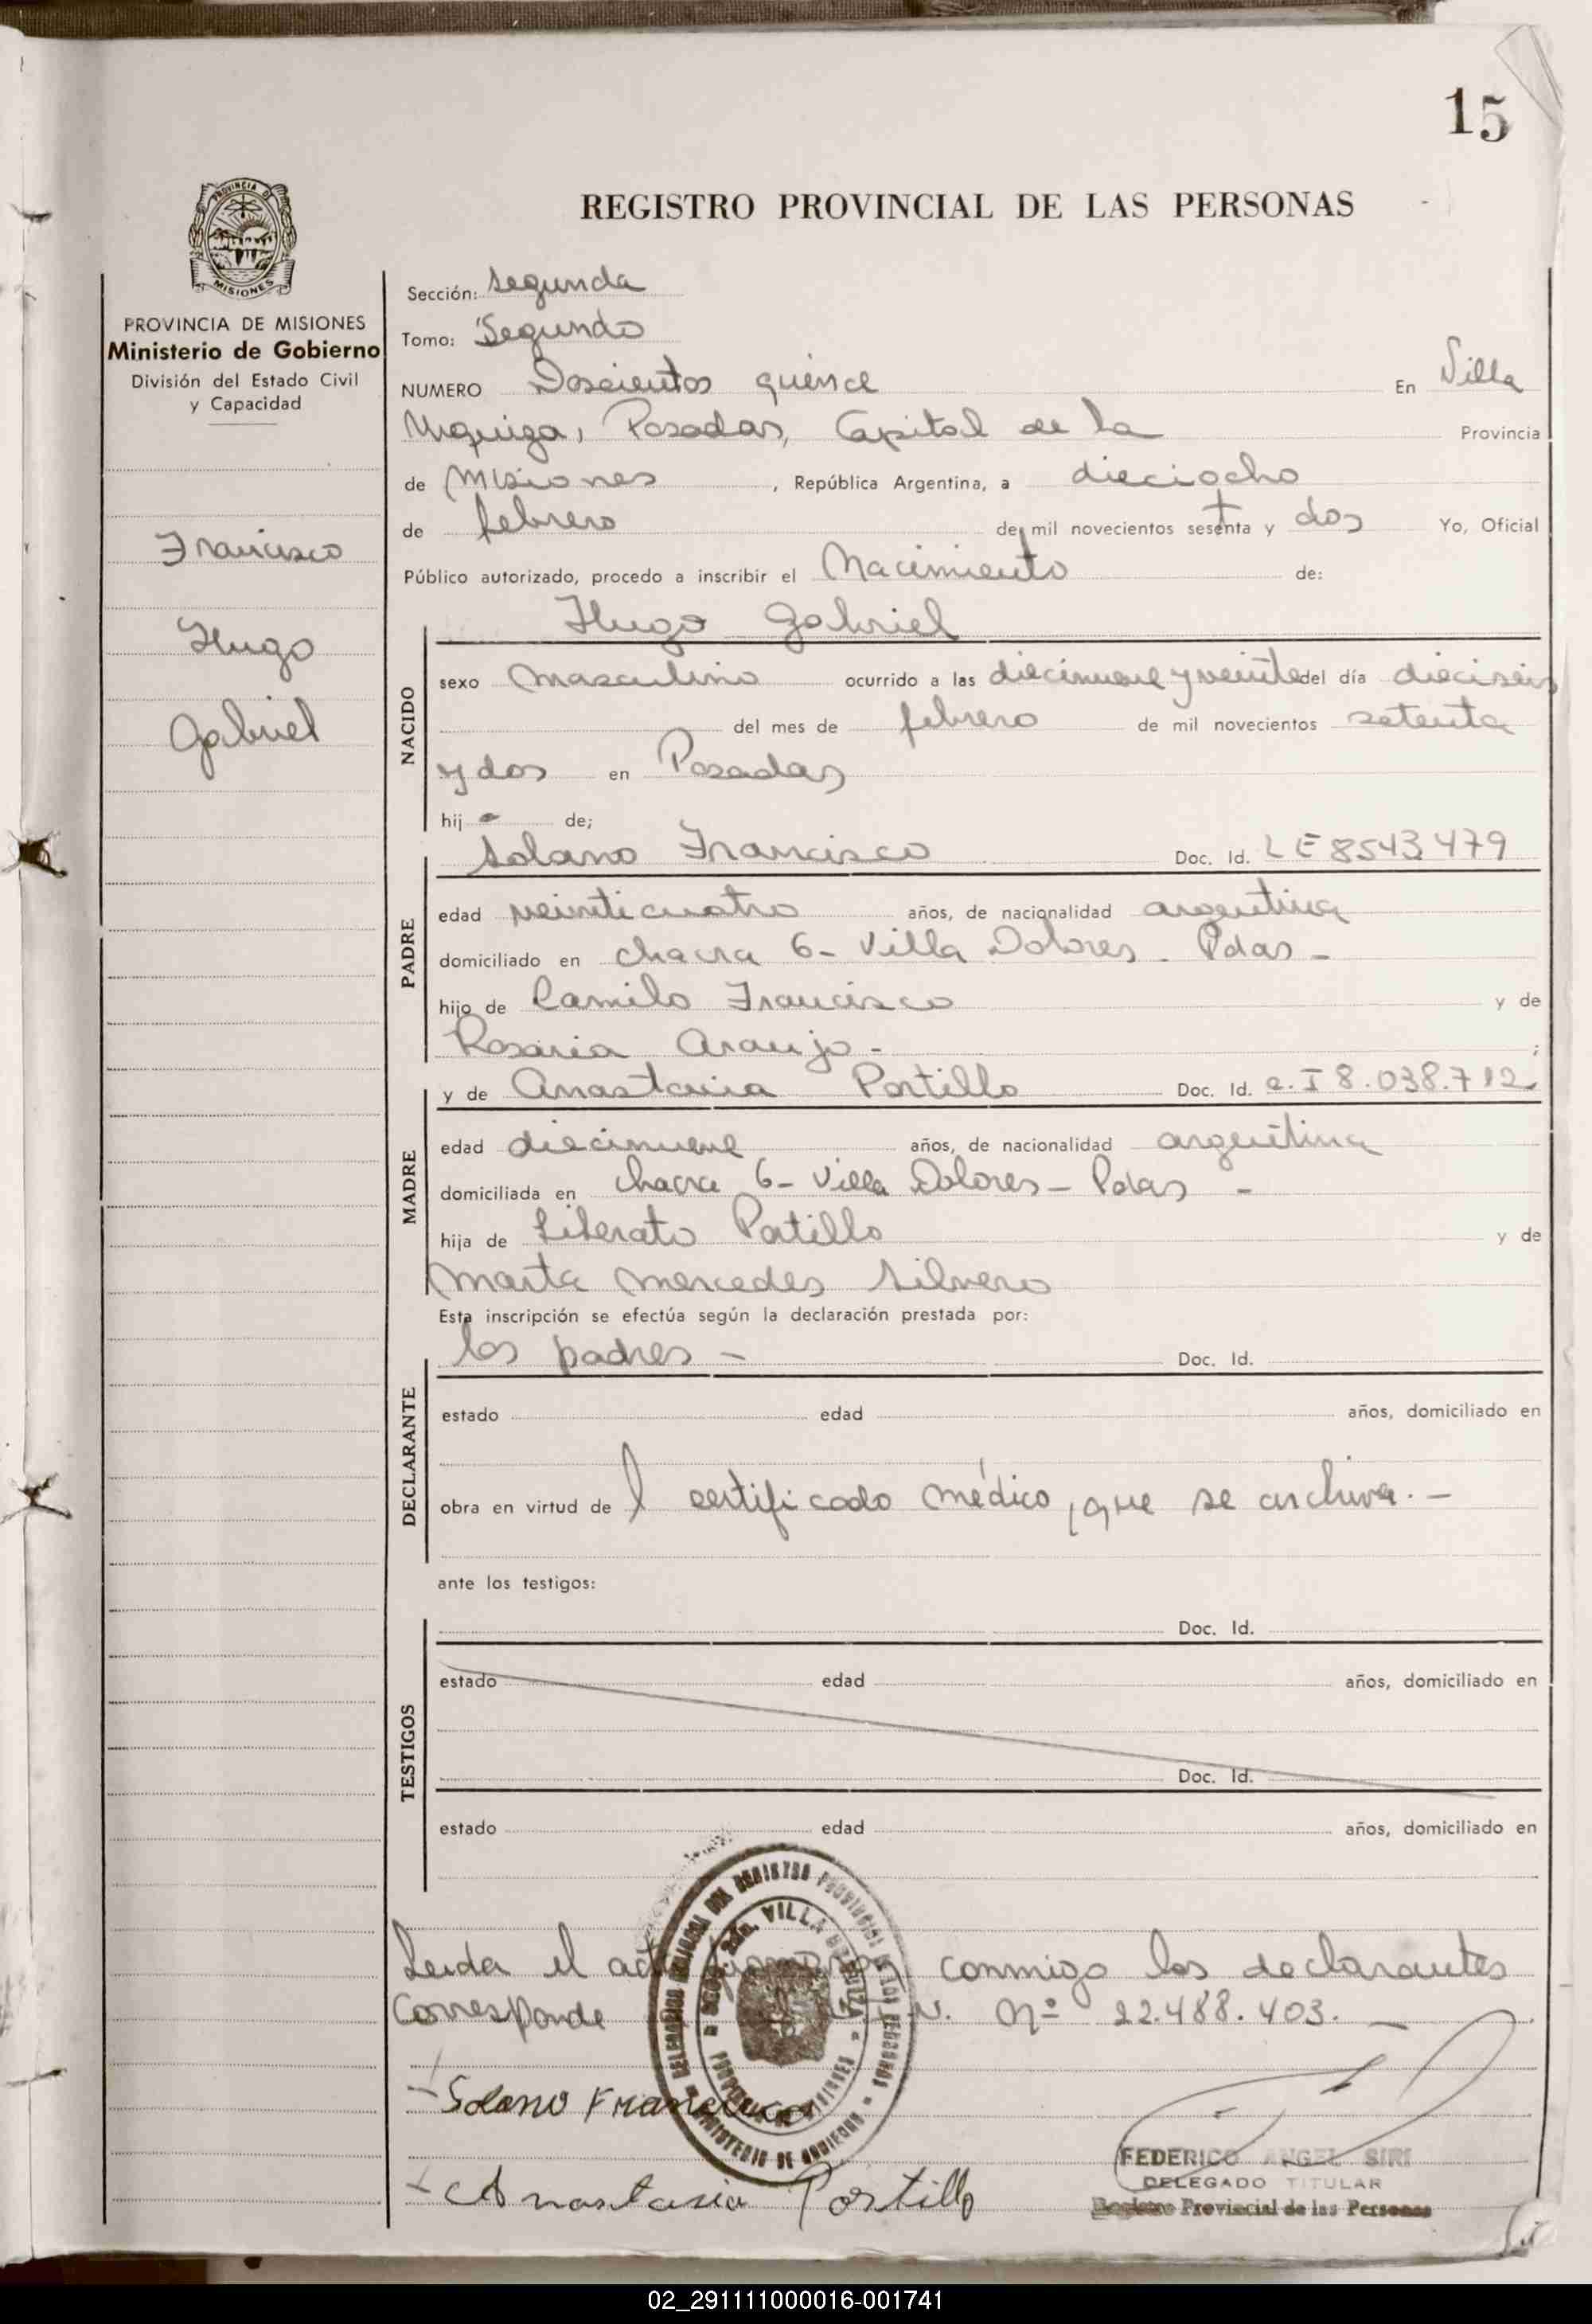 15
REGISTRO PROVINCIAL DE LAS PERSONAS
MISIONES
PROVINCIA DE MISIONES
Ministerio de Gobierno
División del Estado Civil
y Capacidad
Francisco
Hugo
Gabriel
Sección: Segunda
Tomo: Segundo
NUMERO Doscientos quince En Villa
Urquiza, Posadas, Capital de la Provincia
de Misiones, República Argentina, a dieciocho
de febrero de mil novecientos sesenta y dos Yo, Oficial
Público autorizado, procedo a inscribir el Nacimiento de:
NACIDO
Hugo Gabriel
sexo masculino ocurrido a las diecinueve y veinte del día dieciseis
del mes de febrero de mil novecientos setenta
y dos en Posadas
hij o de;
PADRE
Solano Francisco Doc. Id. LE 8543479
edad veinticuatro años, de nacionalidad argentina
domiciliado en chacra 6- Villa Dolores - Pdas -
hijo de Camilo Francisco y de
Rosaria Araujo - ;
MADRE
y de Anastacia Portillo Doc. Id. C.I 8.038.712
edad diecinueve años, de nacionalidad argentina
domiciliada en chacra 6- Villa Dolores - Pdas -
hija de Liberato Portillo y de
Marta Mercedes Silvero
Esta inscripción se efectúa según la declaración prestada por:
DECLARANTE
los padres - Doc. Id.
estado edad años, domiciliado en
obra en virtud de l certificado médico, que se archiva. -
ante los testigos:
TESTIGOS
Doc. Id.
estado edad años, domiciliado en
Doc. Id.
estado edad años, domiciliado en
Leida el acta firmaron conmigo los declarantes
Corresponde Nº 22.488.403. -
Solano Francisco
Anastasia Portillo
FEDERICO ANGEL SIRI
DELEGADO TITULAR
Registro Provincial de las Personas
02_291111000016-001741